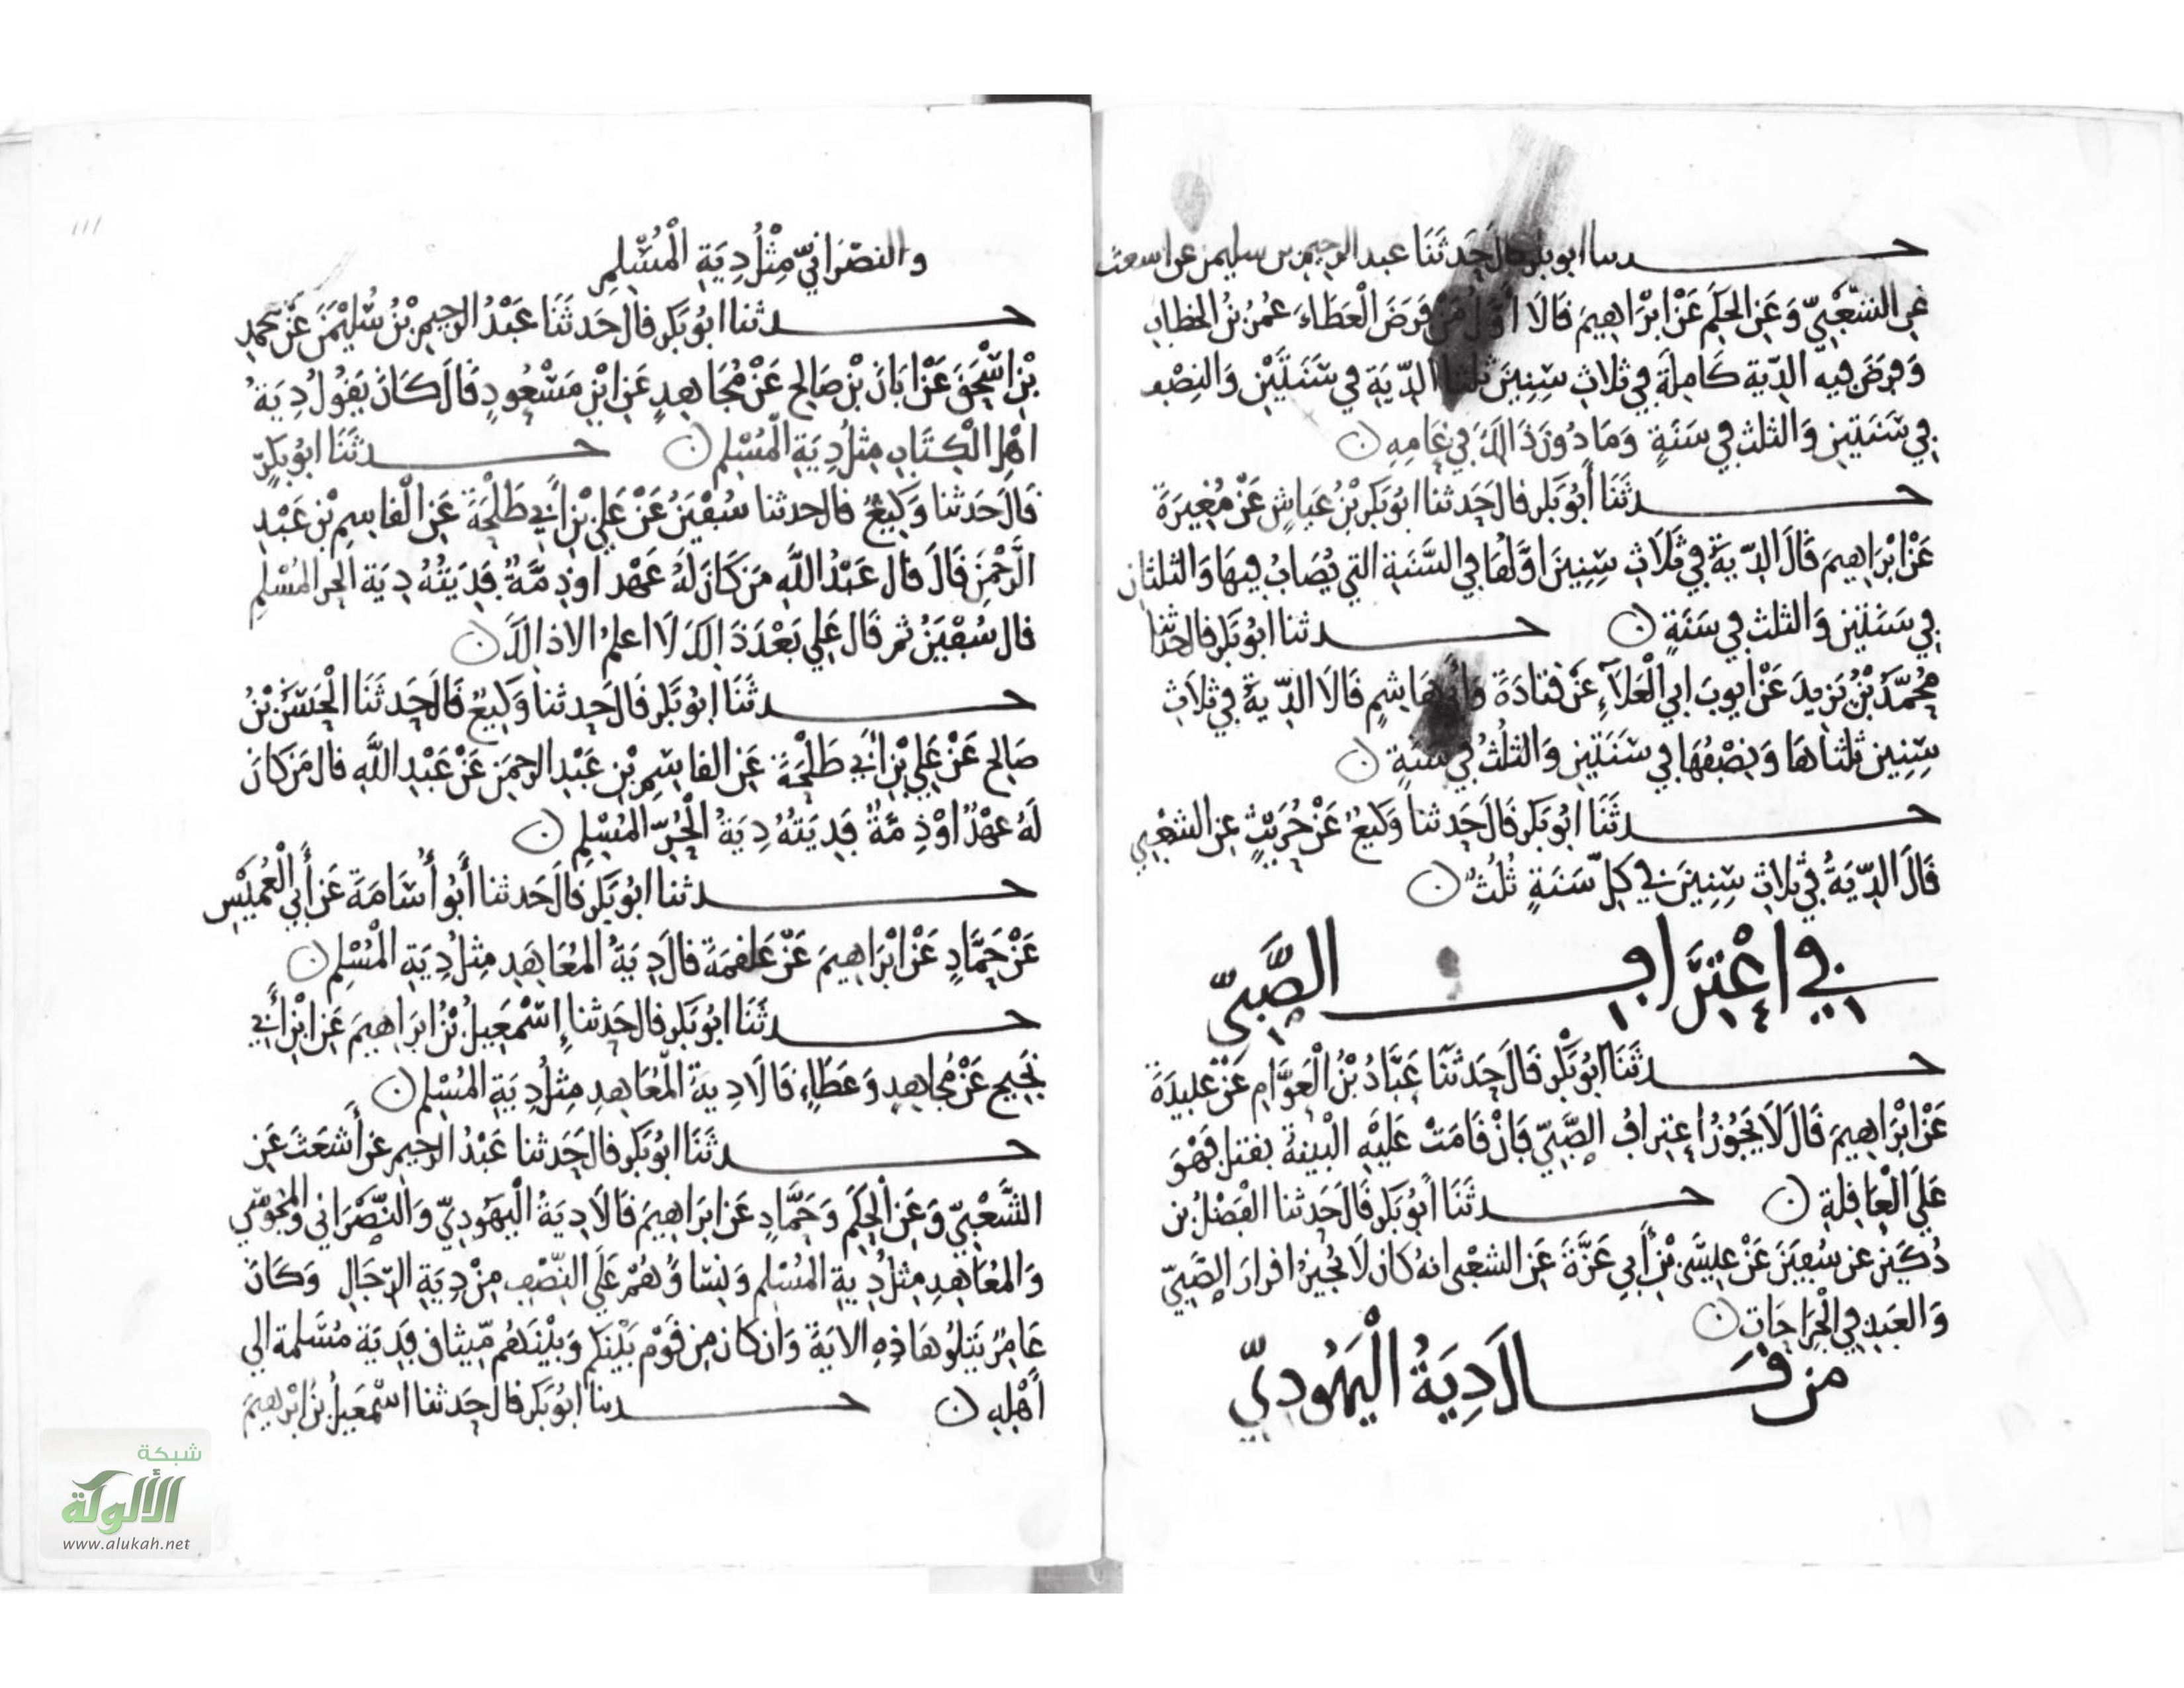 حدثنا ابو بكر قال حَدثَنَا عبد الرحيم بن سليمن عن اشعث
عَنِ الشَّعْبِيِّ وَعَنِ الحَكَمِ عَنْ ابْرَاهِيمَ قَالَا أوَّل مَنْ فَرَضَ الْعَطَاءَ عُمَرُ بْنُ الخطابِ
وَفَرضَ فيه الدِّية كَامِلَةً فِي ثلاثِ سِنِينَ ثُلُثا الدِّيَةِ فِي سَنَتَيْنِ وَالنِصْف
فِي سَنَتَينِ وَالثلث فِي سَنَةٍ وَمَا دُونَ ذَالِكَ فِي عَامِهِ ن
حدثَنَا أَبُو بَكر قالَ حَدثنا ابُو بَكرِ بْنُ عَيَاشٍ عَنْ مُغِيرَةَ
عَنْ ابْرَاهِيمَ قَالَ الدِّيَةُ فِي ثَلَاثِ سِنِينَ اوَّلهَا فِي السَّنَةِ التي يُصَابُ فِيهَا وَالثلثانِ
فِي سَنَتَينِ وَالثلث فِي سَنَةٍ ن حدثنا ابُو بَكر قال حدثنا
مُحَمَّدُ بْنُ يَزِيدَ عَنْ ايوبَ ابِي الْعَلَآءِ عَنْ قتادَةَ وابى هَاشِمٍ قَالَا الدِّيَةُ فِي ثلاثِ
سِنِين ثلثاهَا وَنِصْفُهَا فِي سَنَتَينِ وَالثلُثُ فِي سَنَةٍ ن
حدثَنَا ابُو بَكر قَالَ حَدثنا وَكيعٌ عَنْ حُرَيْثٍ عن الشعْبِي
قَالَ الدِّيَةُ فِي ثلاثِ سِنِينَ فِي كلِّ سَنَةٍ ثُلثٌ ن
فِي اعْتِرَافِ الصَّبِيِّ
حدثَنَا ابُو بَكْر قَالَ حَدثَنَا عَبَّادُ بْنُ الْعَوَّامِ عَنْ عُبيدَةَ
عَنْ ابْرَاهِيمَ قَالَ لَا يَجُوزُ اعتِرافُ الصَّبِيِّ فَإنْ قَامَتْ عَلَيْهِ الْبَيِّنَةُ بقتل فَهْوَ
عَلَى الْعَاقِلَةِ ن حدثَنَا أبُو بَكر قَالَ حَدثنا الْفَضْلُ بن
دُكَينٍ عن سُفيَنَ عَنْ عِيسَى بْنِ أَبِي عَزَّةَ عَنِ الشعْبى انهُ كانَ لَا يُجِيزُ اقرارَ الصَّبِيِّ
وَالعَبْدِ فِي الْجِرَاحَاتِ ن
مَن قَالَ دِيَةُ الْيَهُودِيِّ
وَالنصْرَانِيِّ مِثْلُ دِيَةِ الْمُسْلِمِ
حدثنا ابُو بَكر قالَ حَدثَنَا عَبْدُ الرحِيمِ بْنُ سُلَيْمَنَ عَنْ محمدِ
بْنِ اسْحَقَ عَنْ ابَانَ بْنِ صَالِحٍ عَنْ مُجَاهِدٍ عَنِ ابْنِ مَسْعُودٍ قَالَ كَانَ يَقُولُ دِيَةُ
اهْلِ الْكِتَابِ مِثلُ دِيَةِ الْمُسْلِمِ ن حدثَنَا ابُو بَكرٍ
قَالَ حَدثنا وَكِيعٌ قال حدثنا سُفْيَنُ عَنْ عَلِيِّ بْنِ أَبِي طَلْحَةَ عَنِ الْقاسِمِ بْنِ عَبْدِ
الرَّحْمَنِ قَالَ قَالَ عَبْدُ اللَّهِ مَن كَانَ لَهُ عَهْد اوْ ذِمَّةٌ فَدِيَتُهُ دِيَة الحُر المُسْلِمِ
قال سُفْيَنُ ثم قَالَ عَلِي بَعْدَ ذَالِكَ لَا اعلمُ الا ذالِكَ ن
حدثَنَا ابُو بَكر قَالَ حَدثنا وَكِيعٌ قَالَ حَدثَنَا الْحَسَنُ بْنُ
صَالِحٍ عَنْ عَلِيِّ بْنِ أَبِي طَلْحَةَ عَنِ القاسِمِ بْنِ عَبْدِ الرحمَنِ عَنْ عَبْدِ اللَّهِ قال مَن كانَ
لَهُ عَهْدٌ اوْ ذِمَّةٌ فَدِيَتُهُ دِيَةُ الْحُرِّ الْمُسْلِمِ ن
حدثنا ابُو بَكر قَالَ حَدثنا أَبُو أُسَامَةَ عَن أَبِي الْعُمَيْسِ
عَنْ حَمَّادٍ عَنْ ابْرَاهِيمَ عَنْ عَلقمَةَ قالَ دِيَةُ المُعَاهِدِ مِثلُ دِيَةِ الْمُسْلِمِ ن
حدثَنَا ابُو بَكر قال حَدثنا إِسْمَعِيلُ بْنُ ابرَاهِيمَ عَنِ ابْنِ أَبِي
نَجِيحٍ عَنْ مُجاهِدٍ وَعَطَاءٍ قَالَا دِيةُ الْمُعَاهِدِ مِثلُ دِيَةِ المُسْلِمِ ن
حدثَنَا ابُو بَكر قال حَدثنا عَبْدُ الرحِيم عن أَشعَثَ عَنِ
الشَّعْبِيِّ وَعَنِ الْحَكَمِ وَحَمَّادٍ عَن ابرَاهِيمَ قَالَا دِيَةُ الْيَهُودِيِّ وَالنَّصْرَانِي وَالمَجُوسِي
وَالمُعَاهِدِ مِثلُ دِيةِ المُسْلِمِ وَنِسَاؤُهُمْ عَلَى النِّصْفِ مِنْ دِيَةِ الرِّجَالِ وَكَانَ
عَامِرٌ يَتلُو هَاذِهِ الايَةَ وَان كانَ مِن قَوْمٍ بَيْنَكم وَبَيْنَهُم مِّيثاق فَدِيَة مُسَلَّمة الى
أَهْلِهِ ن حدثنا ابُو بَكر قالَ حَدثنا اسْمَعِيلُ بْنُ ابْرَاهِيمَ
١١١
شبكة
الألوكة
www.alukah.net